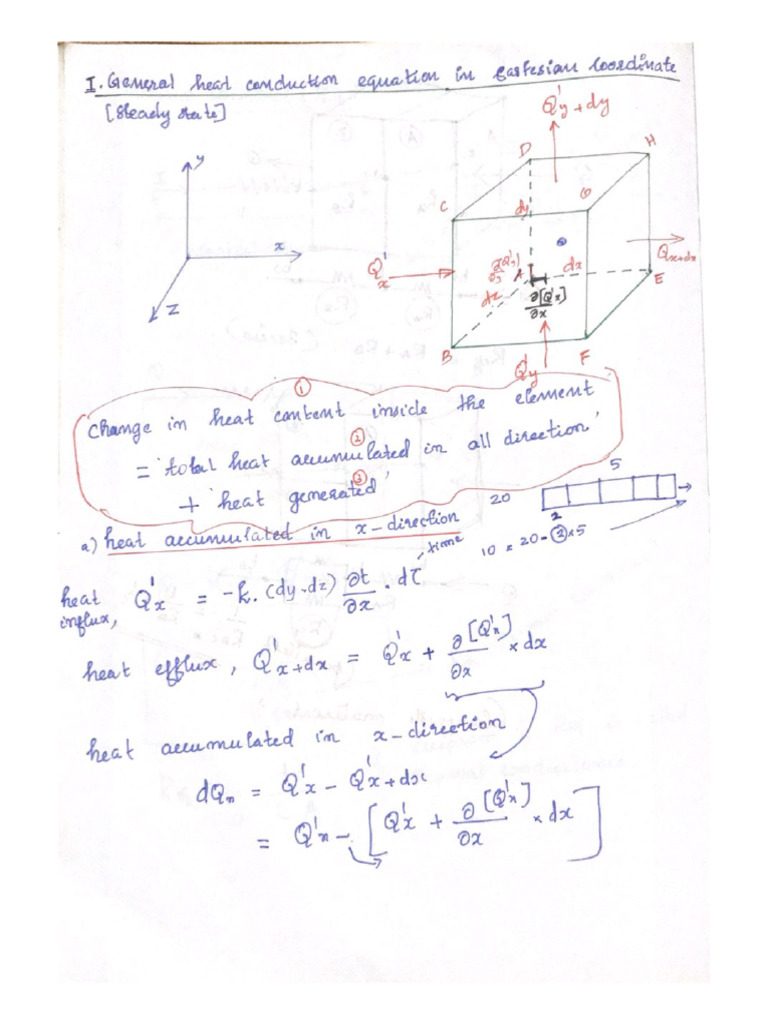 I. General heat conduction equation in Cartesian Coordinate
[Steady state]
Q'y+dy
y
x
Z
D
H
C
G
dy
Q'x
∂[Q'y]
∂y
A
dx
Qx+dx
dz
∂[Q'x]
∂x
E
B
F
Q'y
①
Change in heat content inside the element
②
= 'total heat accumulated in all direction'
③
+ 'heat generated'
20
5
2
10 × 20 - ② × 5
a) heat accumulated in x-direction
time
heat influx, Q'x = -k. (dy.dz) ∂t/∂x . dτ
heat efflux, Q'x+dx = Q'x + ∂[Q'x]/∂x × dx
heat accumulated in x-direction
dQx = Q'x - Q'x+dx
= Q'x - [Q'x + ∂[Q'x]/∂x × dx]